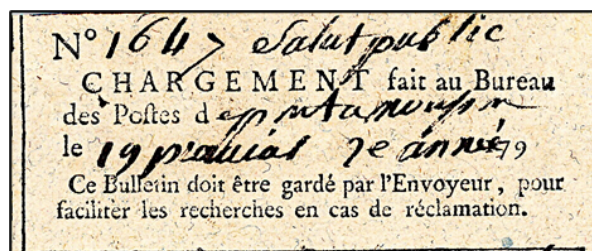 N° 1647 Salut public
CHARGEMENT fait au Bureau
des Postes de pontamousson
le 19 prairial 2e année 179
Ce Bulletin doit être gardé par l'Envoyeur, pour
faciliter les recherches en cas de réclamation.